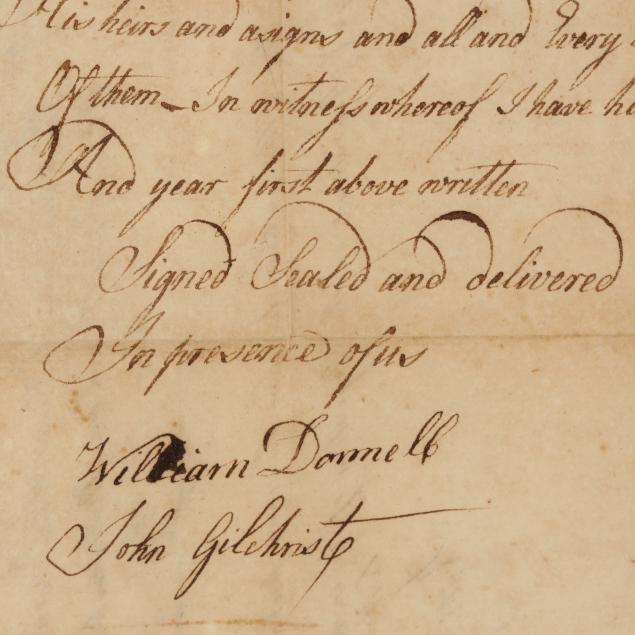 His heirs and asigns and all and Every
Of them - In witness whereof I have
And year first above written
Signed Sealed and delivered
In presence of us
William Donnell
John Gilchrist